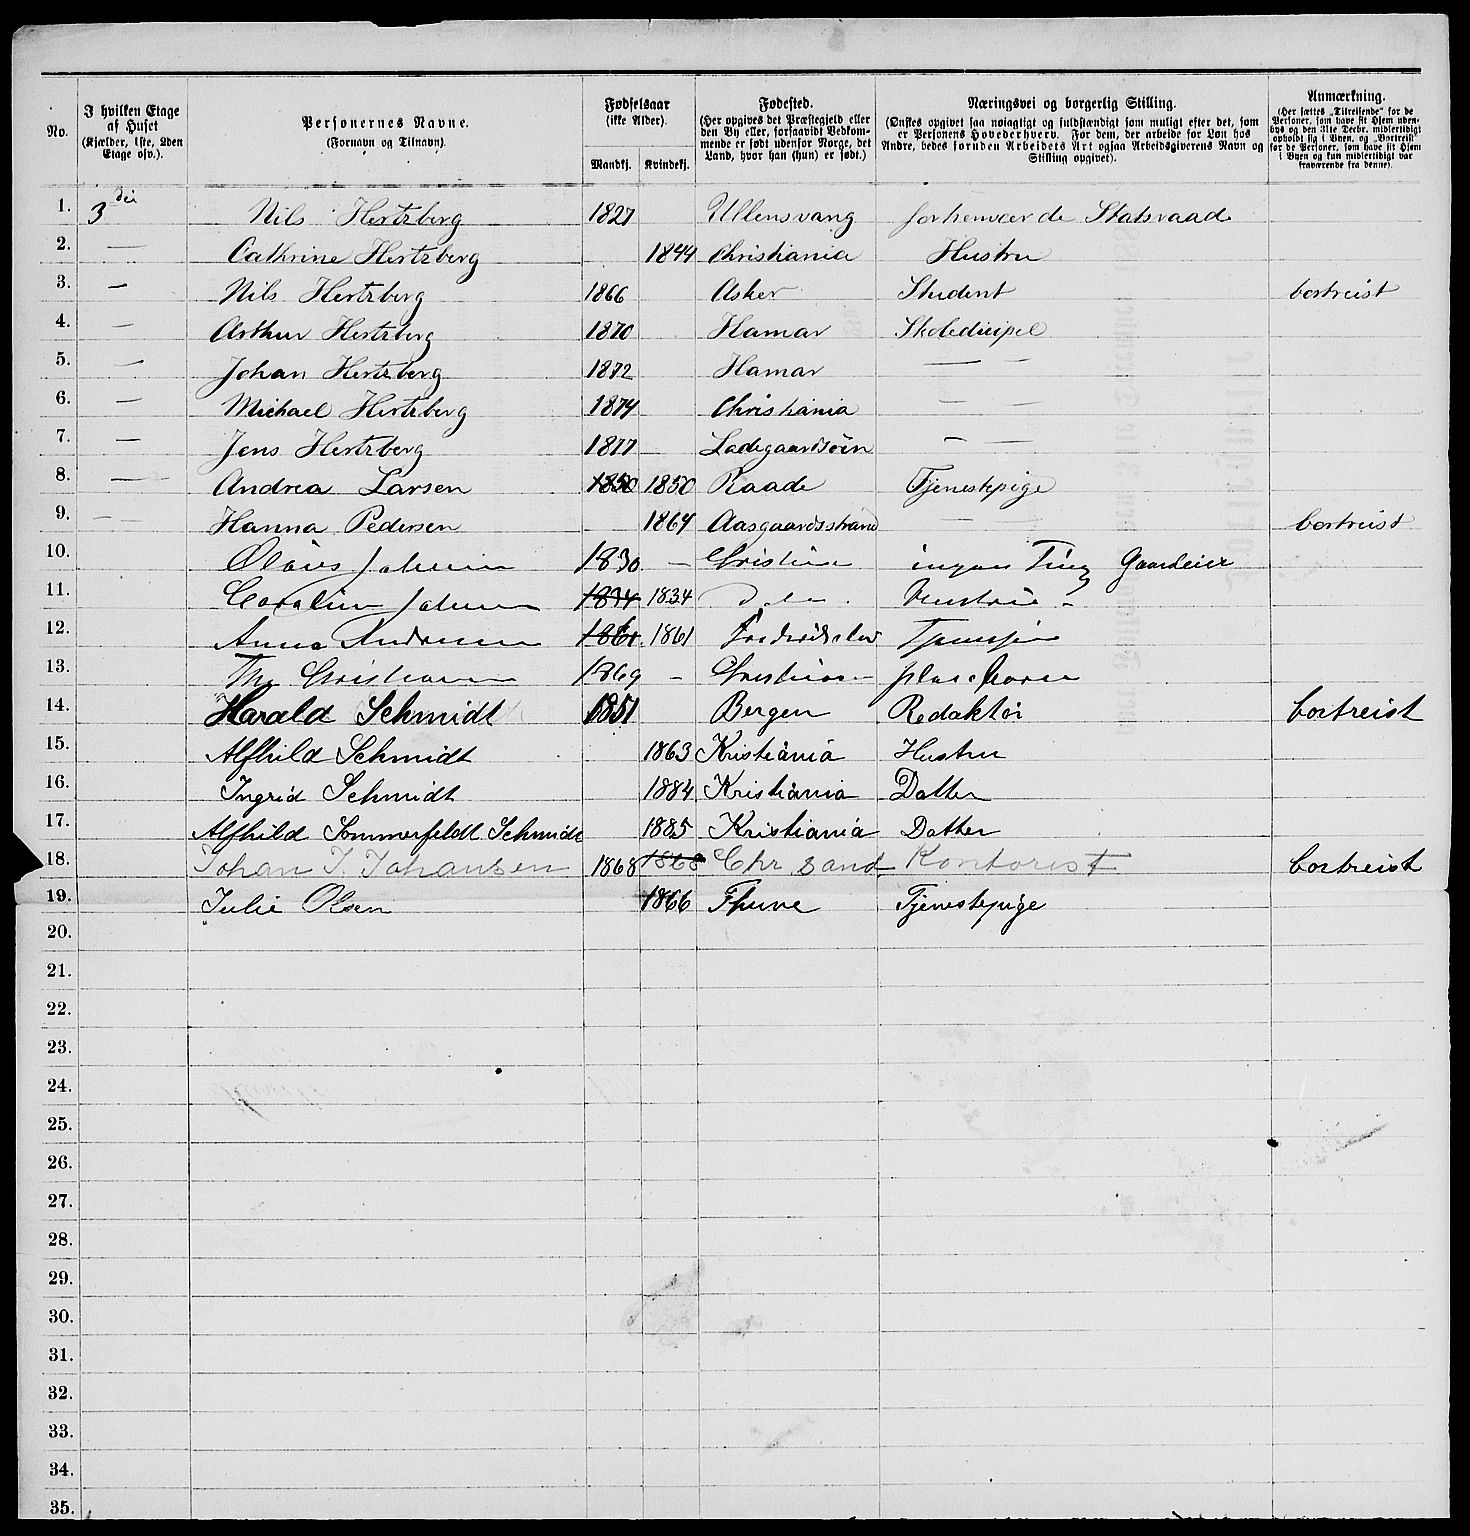 No. | I hvilken Etage af Huset (Kjælder, 1ste, 2den Etage osv.). | Personernes Navne. (Fornavn og Tilnavn). | Fødselsaar (ikke Alder). Mandkj. | Kvindekj. | Fødested. (Her opgives det Præstegjeld eller den By eller, forsaavidt Vedkommende er født udenfor Norge, det Land, hvor han (hun) er født.) | Næringsvei og borgerlig Stilling. (Ønskes opgivet saa nøiagtigt og fuldstændigt som muligt efter det, som er Personens Hovederhverv. For dem, der arbeide for Løn hos Andre, bedes foruden Arbeidets Art ogsaa Arbeidsgiverens Navn og Stilling opgivet). | Anmærkning. (Her sættes „Tilreisende“ for de Personer, som have sit Hjem udenbys og den 31te Decbr. midlertidigt opholdt sig i Byen, og „Bortreist“ for de Personer, som have sit Hjem i Byen og kun midlertidigt var fraværende fra denne).
1. | 3die | Nils Hertzberg | 1827 | | Ullensvang | forhenværende Statsraad |
2. | — | Cathrine Hertzberg | | 1844 | Christiania | Hustru |
3. | — | Nils Hertzberg | 1866 | | Asker | Student | bortreist
4. | — | Arthur Hertzberg | 1870 | | Hamar | Skoledicipel |
5. | — | Johan Hertzberg | 1872 | | Hamar | — — |
6. | — | Michael Hertzberg | 1874 | | Christiania | — — |
7. | — | Jens Hertzberg | 1877 | — | Ladegaardsøen | — — |
8. | — | Andrea Larsen | 1850 | 1850 | Raade | Tjenestepige |
9. | — — | Hanna Pedersen | — | 1864 | Aasgaardsstrand | — — | bortreist
10. | | Olaus | 1830 | — | | ingen Ting Gaardeier |
11. | | | 1834 | 1834 | | Hustru |
12. | | Anna | 1861 | 1861 | | |
13. | | | 1869 | — | | |
14. | | Harald Schmidt | 1851 | | Bergen | Redaktør | bortreist
15. | | Alfhild Schmidt | | 1863 | Kristiania | Hustru |
16. | | Ingrid Schmidt | | 1884 | Kristiania | Datter |
17. | | Alfhild Sommerfeldt Schmidt | | 1885 | Kristiania | Datter |
18. | | Johan J. Johansen | 1868 | 1868 | Chr sand | Kontorist | bortreist
19. | | Julie Olsen | | 1866 | Thune | Tjenestepige |
20.
21.
22.
23.
24.
25.
26.
27.
28.
29.
30.
31.
32.
33.
34.
35.